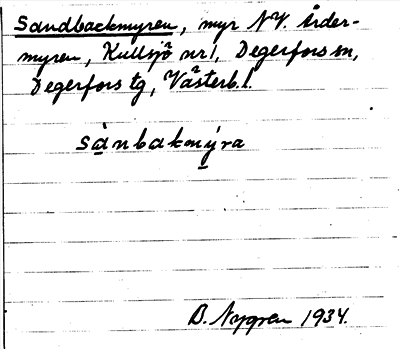 Sandbackmyren, myr NV. Årder-
myren, Kullsjö nr 1, Degerfors sn,
Degerfors tg, Västerb. l.
sànbakmýra
B. Nygren 1934.